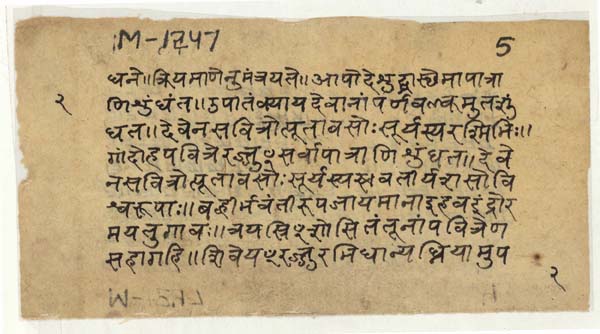 M-1747
5
धने॥ म्रियमाणेनुमंत्रयते॥ आपोदेशुद्धास्थेमापात्रा
णिशुंधत॥ उपातंक्यायदेवानांपर्णवल्कमुतशुं
धत॥ देवेनसवित्रोत्पूतावसोः सूर्यस्यरश्मिभिः॥
गांदोहपवित्रेरज्जुꣳसर्वापात्राणिशुंधत॥ देवे
नसवित्रोत्पूतावसोः सूर्यस्य वतीर्यशसोवि
श्वरूपाः॥ बह्वीर्भवंतीरुपजायमानाइहवइंद्रोर
मयतुगावः॥ त्रयस्त्रिꣳशोसितंतूनांपवित्रेण
सहागहि॥ शिवेयꣳरज्जुरभिधान्यघ्नियामुप
२
२